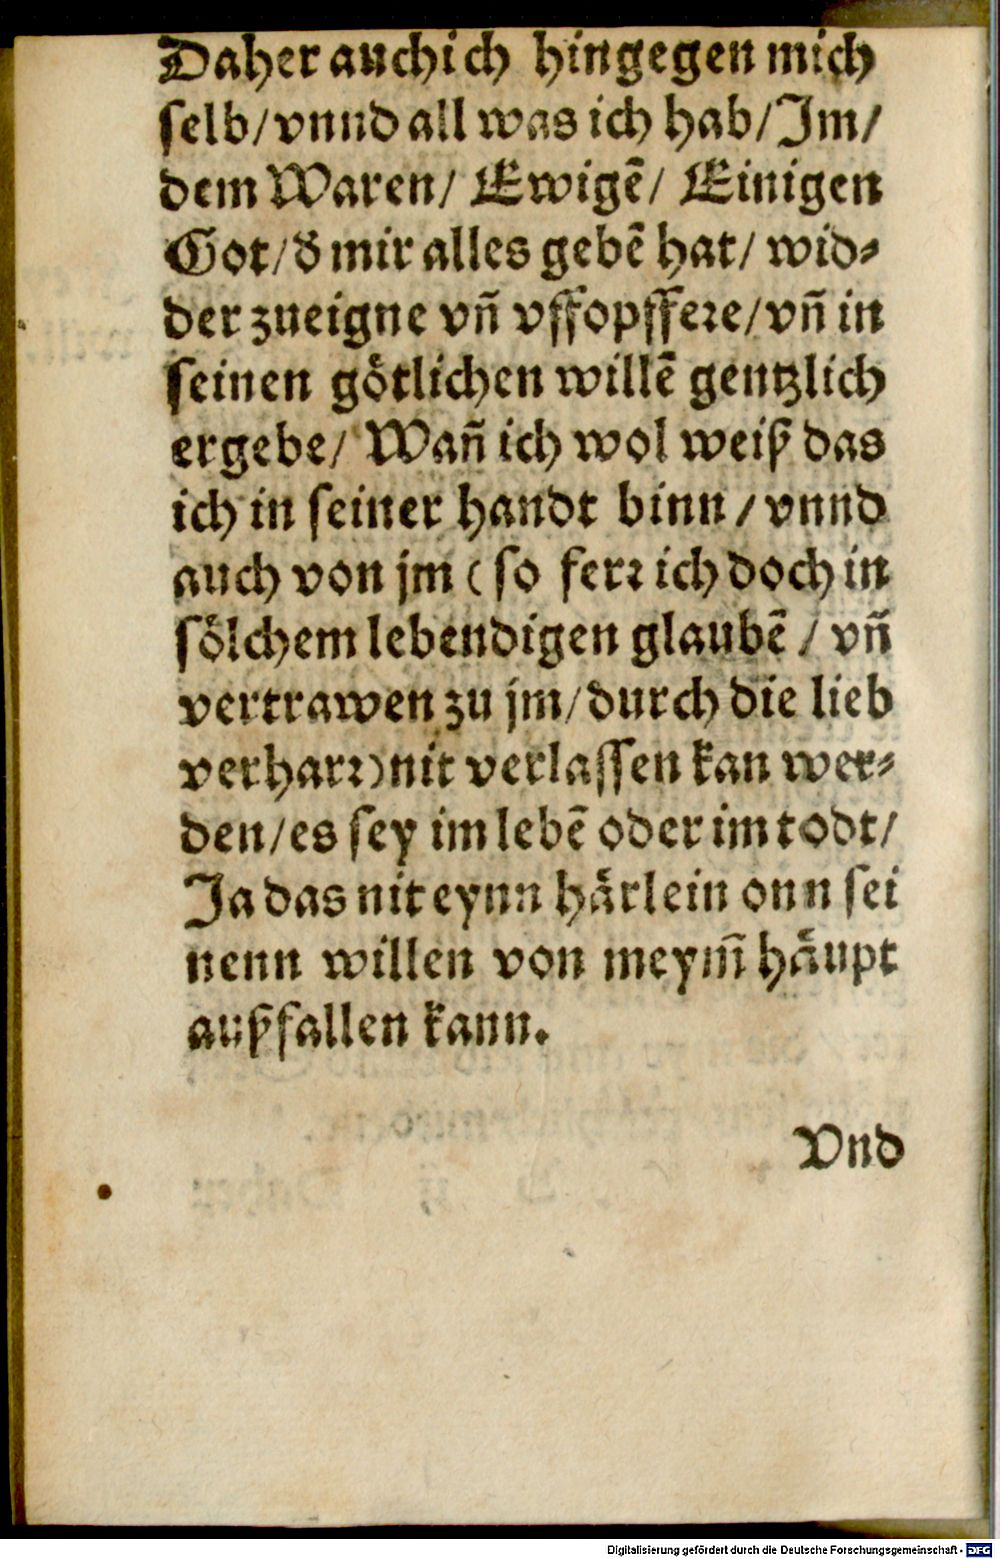 Daher auch ich hingegen mich
ſelb/vnnd all was ich hab/Im/
dem Waren/ Ewigē/ Einigen
Got/ð mir alles gebē hat/ wid⸗
der zueigne vñ vffopffeꝛe/vñ in
ſeinen goͤtlichen willē gentzlich
ergebe/ Wañ ich wol weiß das
ich in ſeiner handt binn/vnnd
auch von jm (ſo ferꝛ ich doch in
ſoͤlchem lebendigen glaubē/ vñ
vertrawen zu jm/durch die lieb
verharꝛ)nit verlaſſen kan wer⸗
den/es ſey im lebē oder im todt/
Ja das nit eynn haͤrlein onn ſei
nenn willen von meym̄ haͤupt
außfallen kann.
Vnd
Digitalisierung gefördert durch die Deutsche Forschungsgemeinschaft - DFG